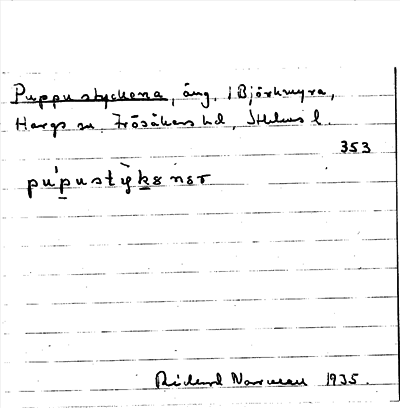 Puppustyckena, äng, i Björkmyra,
Hargs sn, Frösåkers hd, Sthlms l.
353
pu̍pustỳkɛnɛr
Rickard Norrman 1935.